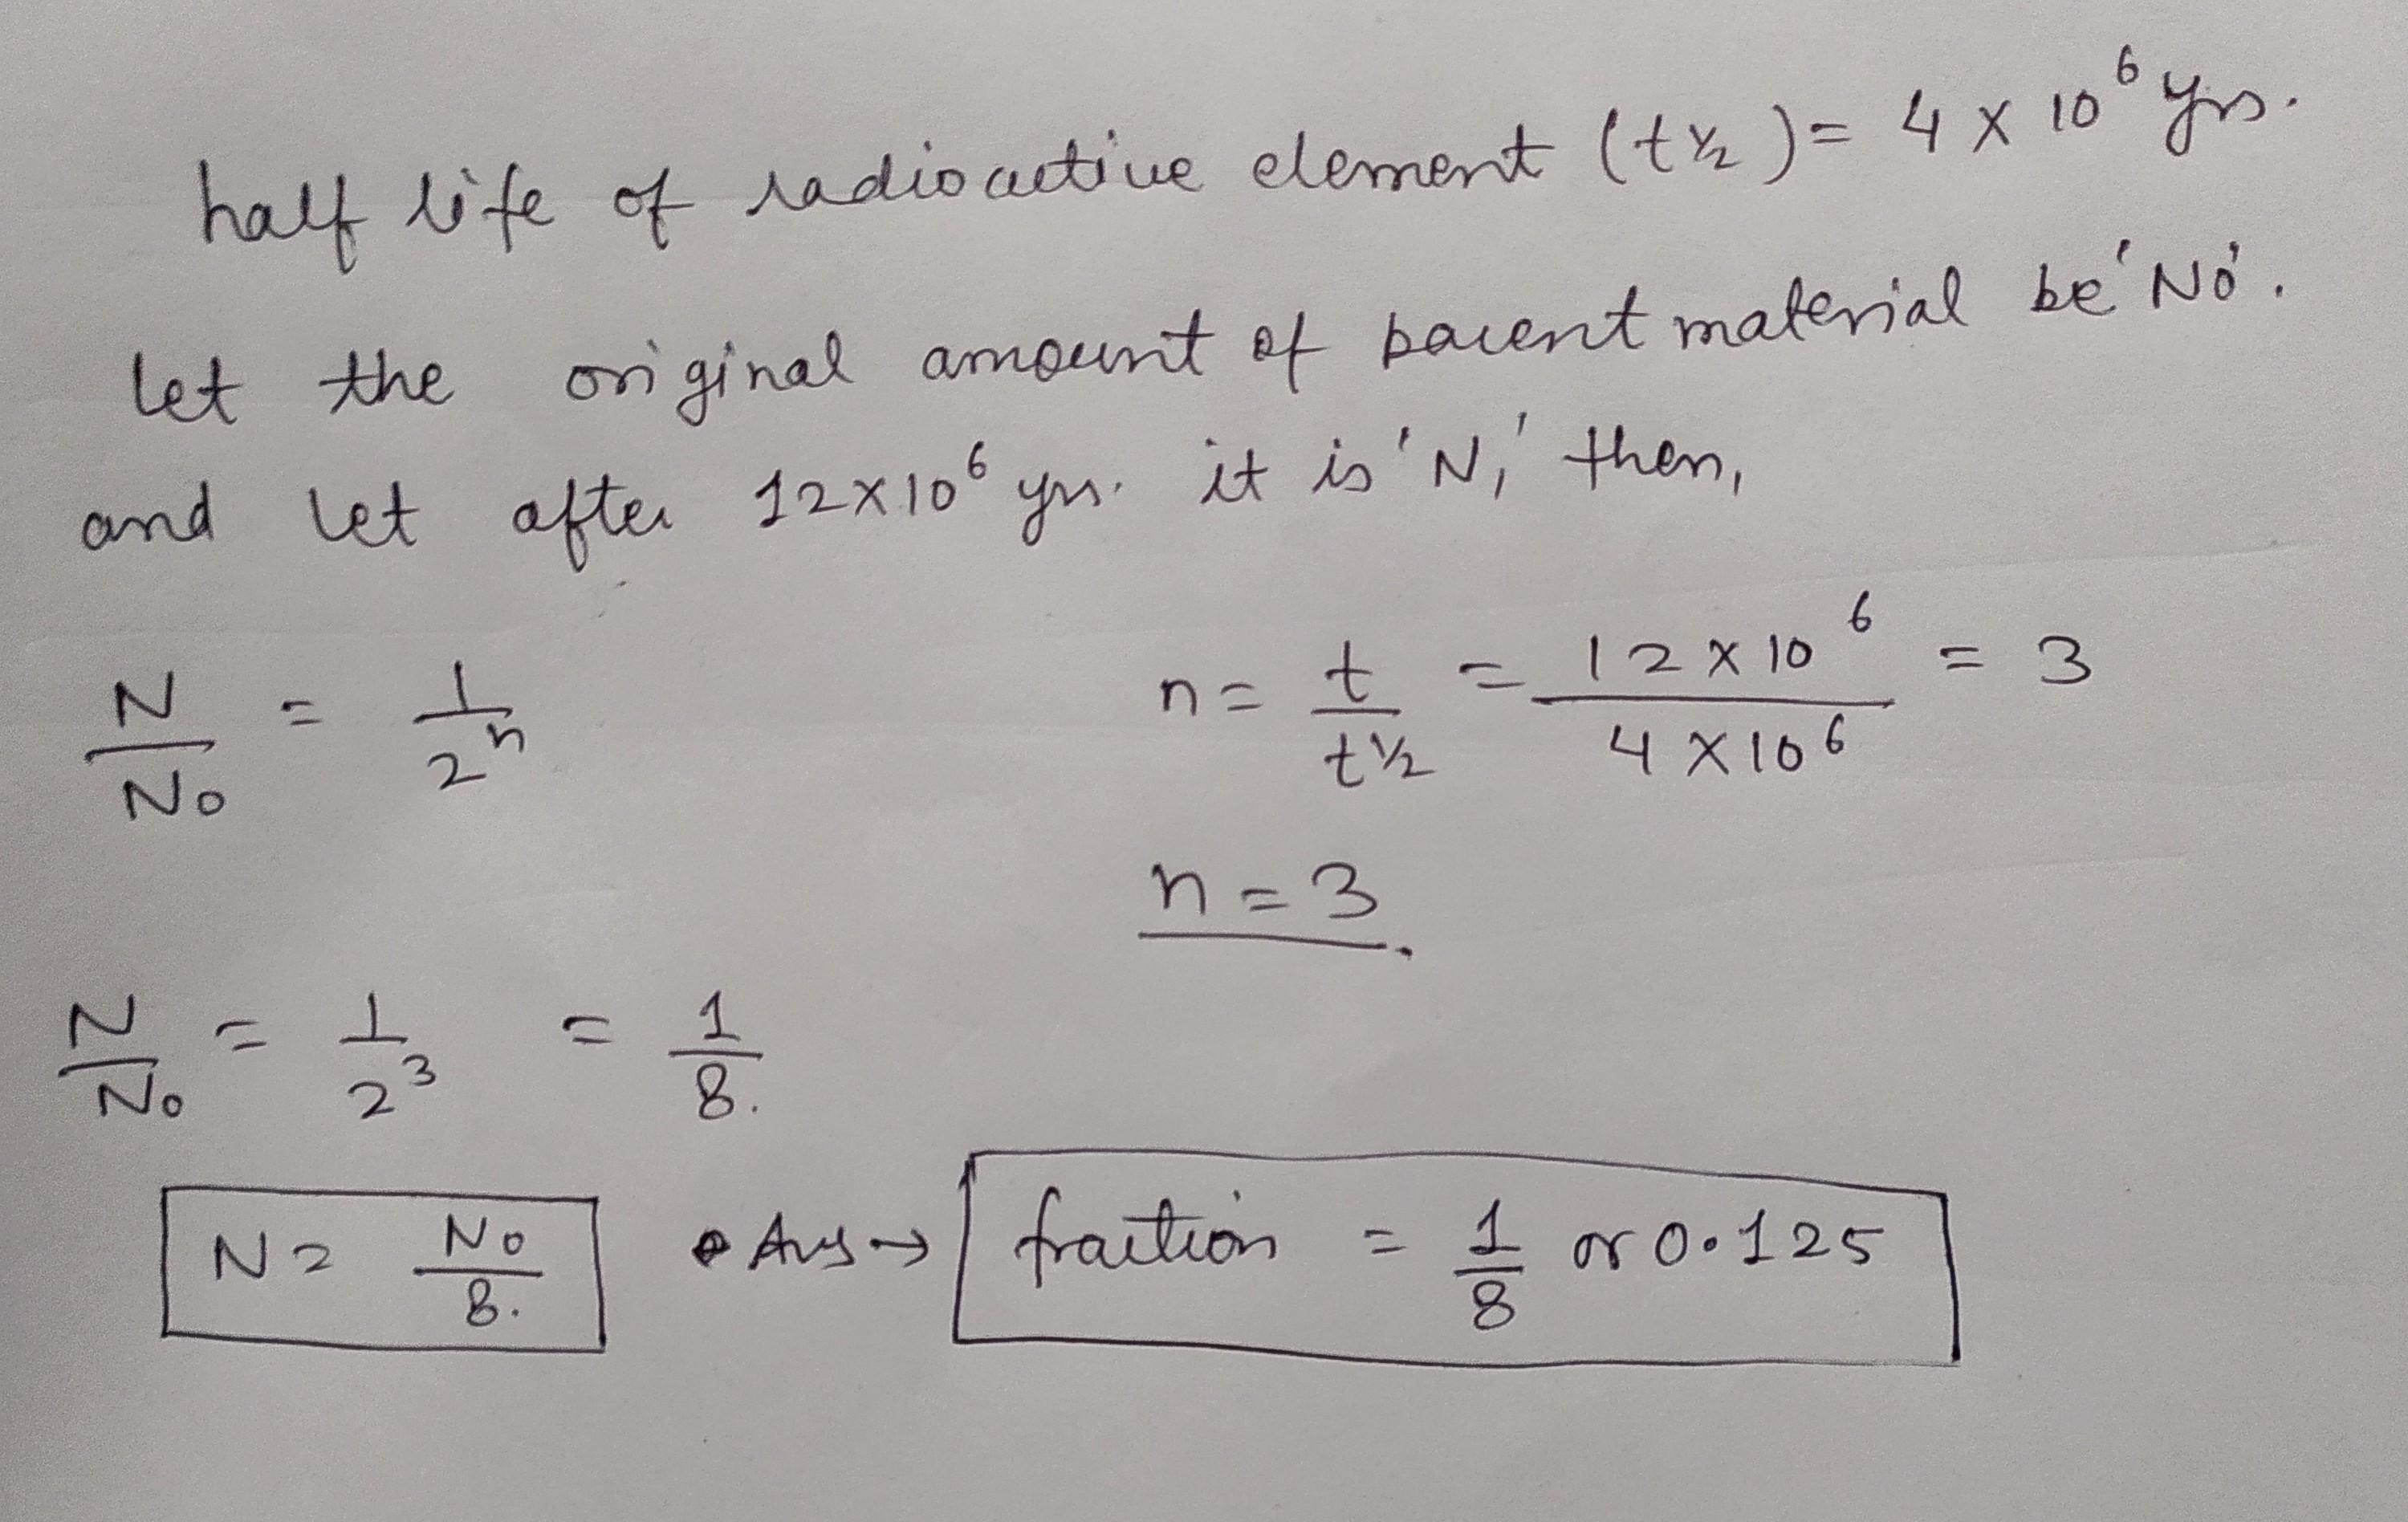 half life of radioactive element (t½) = 4 × 10⁶ yrs.
let the original amount of parent material be 'No'.
and let after 12×10⁶ yrs. it is 'N,' then,
N/No = 1/2ⁿ
n = t/t½ = 12×10⁶/4×10⁶ = 3
n = 3.
N/No = 1/2³ = 1/8.
N = No/8. Ans → fraction = 1/8 or 0.125